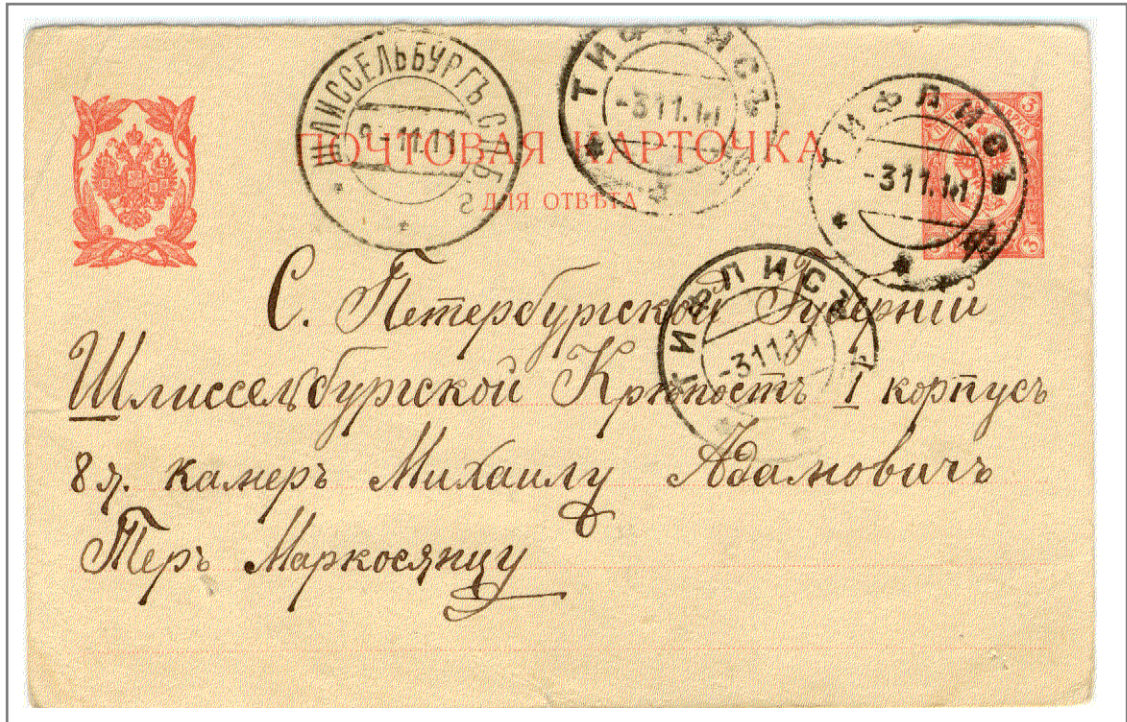 ШЛИССЕЛЬБУРГЪ С.П.Б. Г.
8-11.11
ТИФЛИСЪ
-311.11
ТИФЛИСЪ
-311.11
ПОЧТОВАЯ КАРТОЧКА
ДЛЯ ОТВѢТА
ТИФЛИСЪ
-311.11
С. Петербургской Губернiи
Шлиссельбургской Крѣпость 1 корпусъ
8я. камеръ Михаилу Адамовичъ
Теръ Маркосянцу